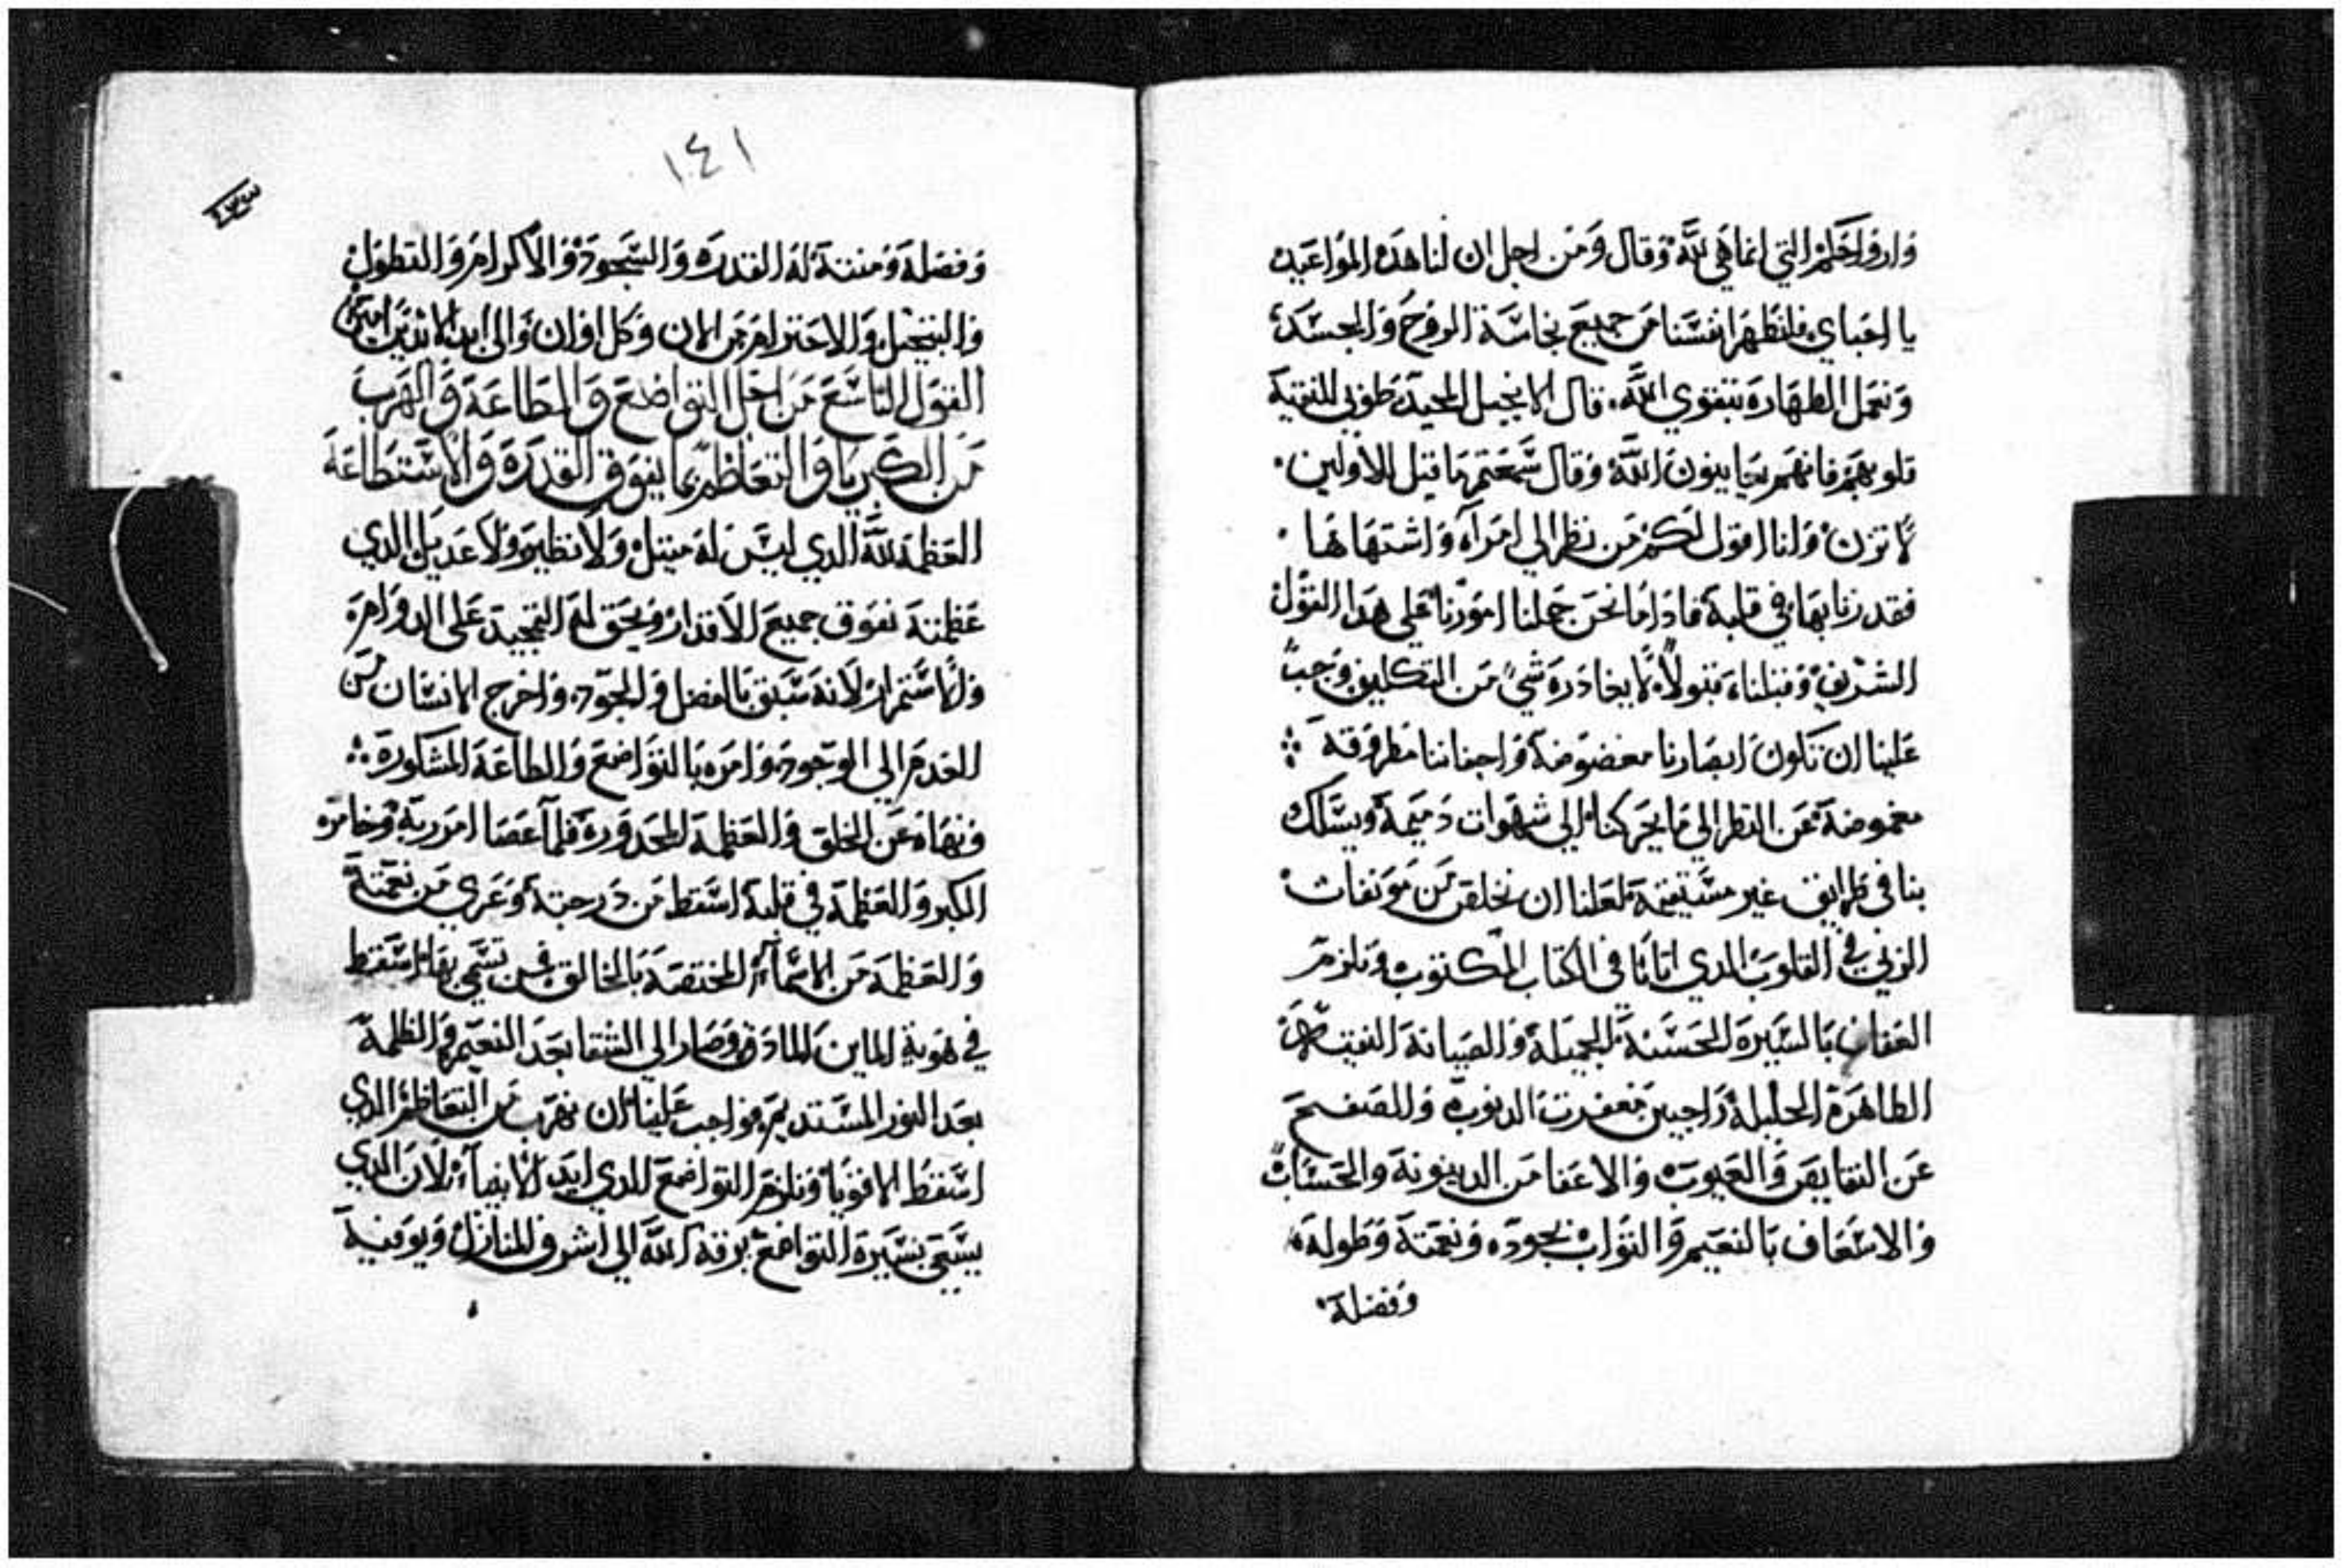 وارواحكم التي انما هي لله وقال ومن اجل ان لنا هده المواعيد
يا احباي فلنطهر انفسنا من جميع نجاسة الروح والجسد
ونعمل الطهارة بتقوي الله قال الانجيل المجيد طوبي للنقية
قلوبهم فانهم يعاينون الله وقال سمعتم ما قيل للاولين
لا تزن وانا اقول لكم من نظر الي امراه واشتهاها
فقد زنا بها في قلبه فادا ما نحن حملنا امورنا علي هدا القول
الشريف وقبلناه قبولا لا يغادره شي من التكليف وجب
علينا ان تكون ابصارنا مغضوضة واجفاننا مطروقه
مغموضة عن النظر الي ما يحركنا الي شهوات دميمة ويسلك
بنا في طرايق غير مستقيمة لعلنا ان نخلص من موبقات
الزني في القلوب الدي اتانا في الكتاب المكتوب ونلزم
العفاف بالسيرة الحسنة الجميلة والصيانة النقية
الطاهرة الجليلة راجيين مغفرت الدنوب والصفح
عن النقايص والعيوب والاعفا من الدينونة والحساب
والاسعاف بالنعيم والثواب بجوده ونعمتة وطولة
وفضلة
١٤١
وفضلة ومنتة له القدره والسجود والاكرام والتطول
والتبجيل والاحترام من الان وكل اوان والي ابد الابدين امين
القول التاسع من اجل التواضع والطاعة والهرب
من الكبريا والتعاظم بما يفوق القدرة والاستطاعة
العظمة لله الدي ليس له مثيل ولا نظير ولا عديل الدي
عظمتة تفوق جميع الاقدار ويحق له التمجيد علي الدوام
والاستمرار لانه سبق بالفضل والجود واخرج الانسان من
العدم الي الوجود وامره بالتواضع والطاعة المشكورة
ونهاه عن الخلق والعظمة المحدورة فلما عصا امر ربة وخامره
الكبر والعظمة في قلبة اسقط من درجتة وعري من نعمتة
والعظمة من الاسماء المختصة بالخالق فمن تسمي بها اسقط
في هوية وصار الي الشقا بعد النعيم والظلمة
بعد النور المستديم فواجب علينا ان نهرب من التعاظم الدي
اسقط الاقويا ونلزم التواضع للدي ايد الانبياء لان الدي
يسعي بسيرة التواضع يرقه الله الي اشرف المنازل ويوفية